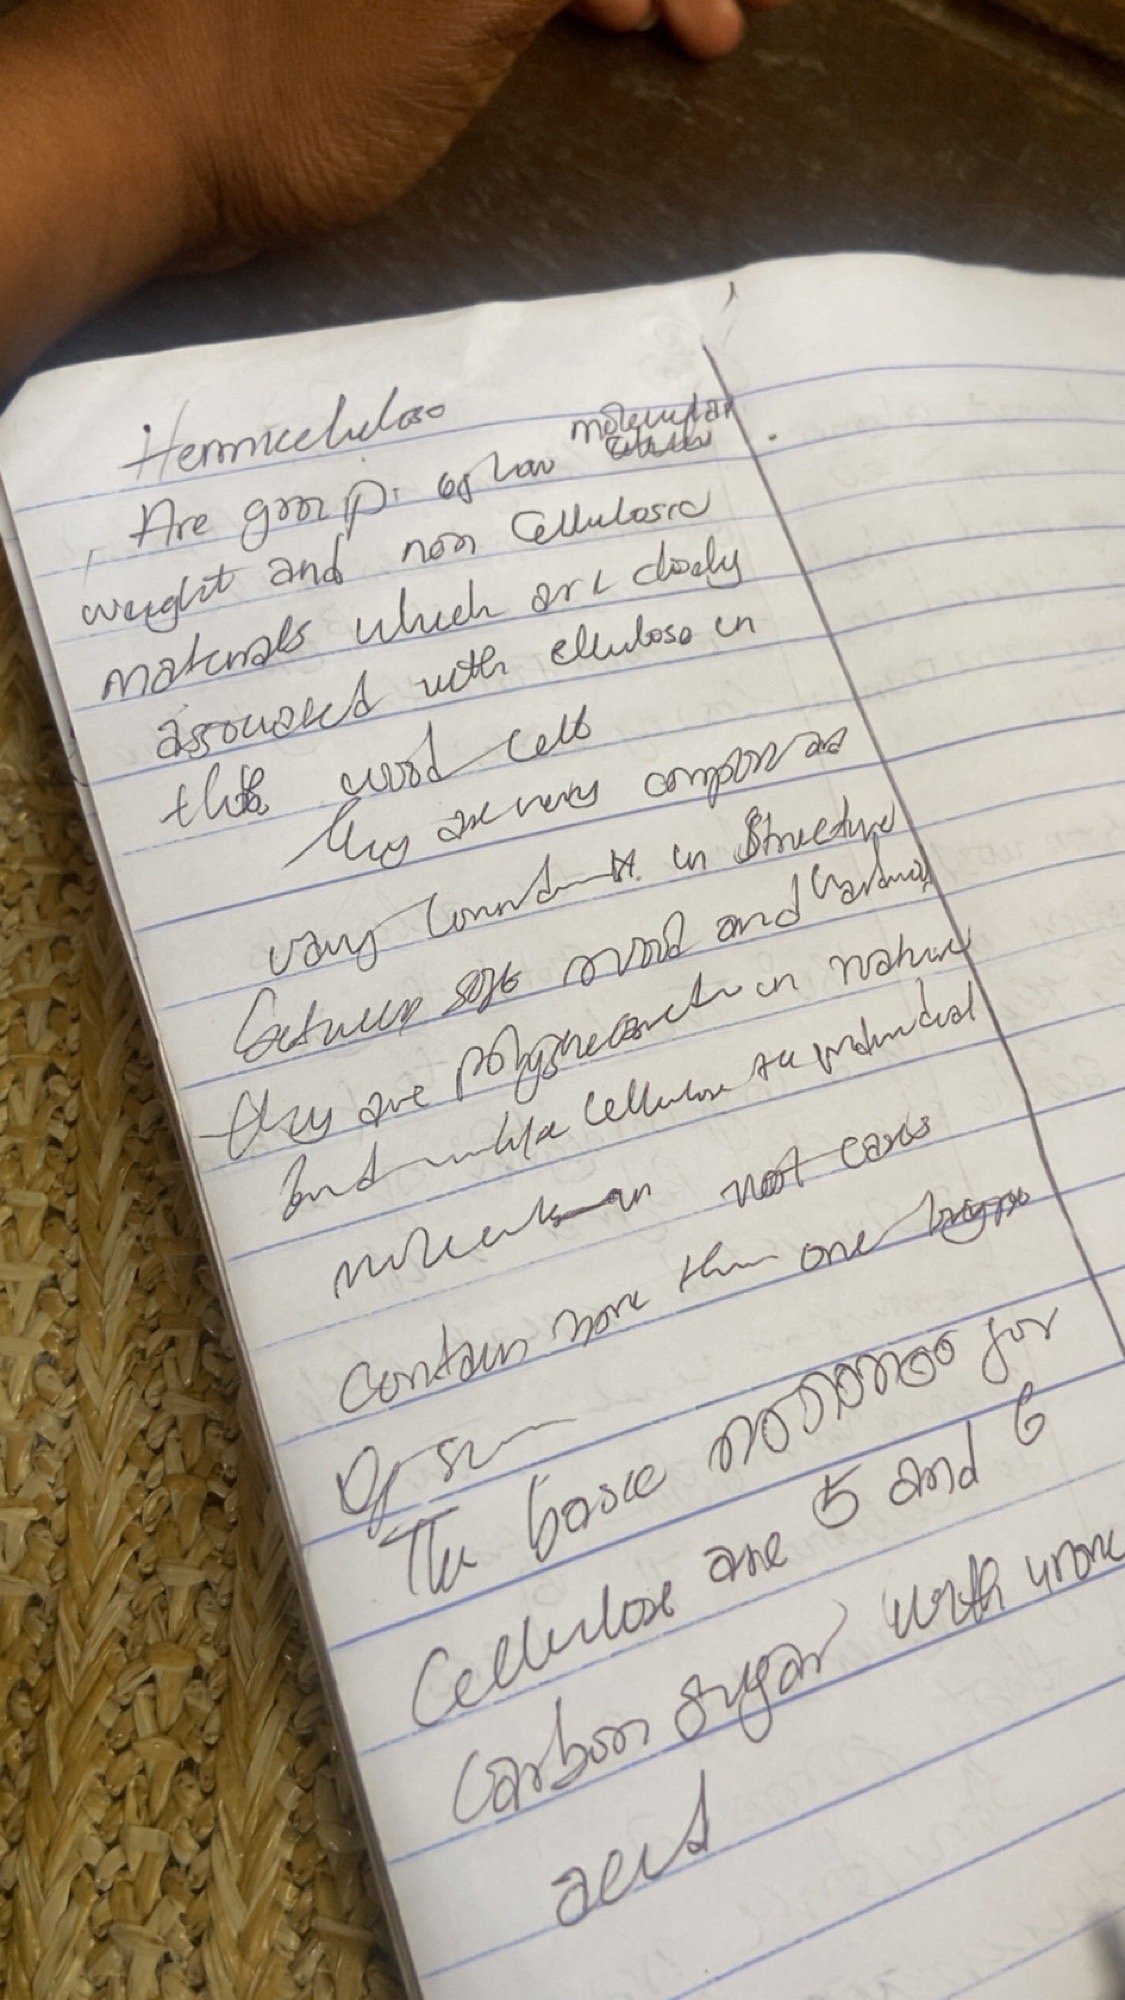 Hemicelulose
Are group of low molecular
weight and non Cellulosic
materials which are closely
associated with cellulose in
the wood cell
They are very complex and
vary in Structure
between soft wood and hardwood
they are in nature
and unlike Cellulose the individual
molecules in not cases
contain more than one
Of
The basic for
Cellulose are 5 and 6
Carbon sugar with
acid